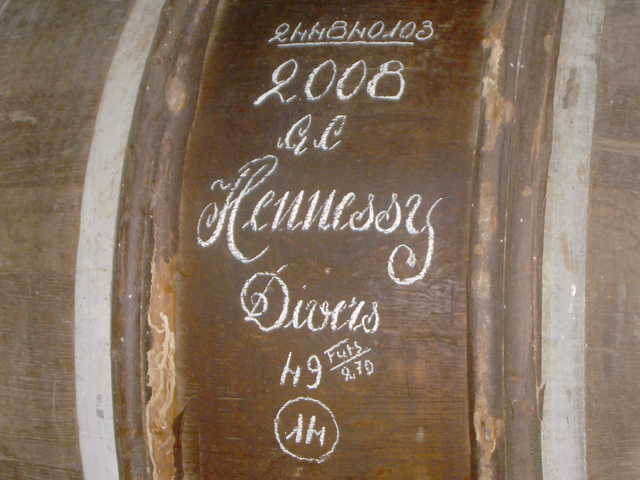 244840103
2008
G.C
Hennessy
Divers
49 Futs 270
14